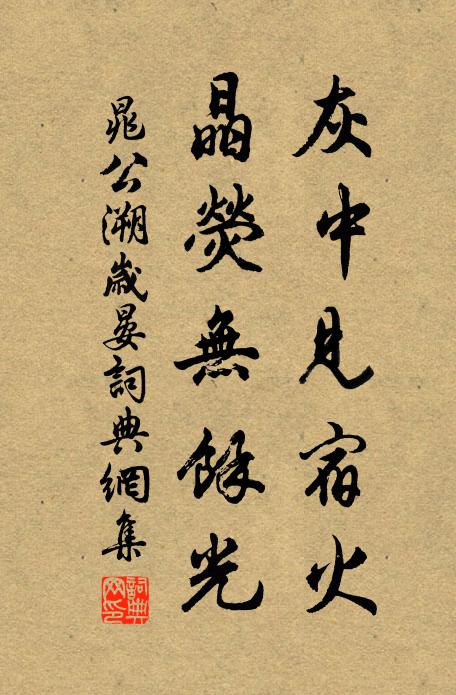 灰中見宿火
晶熒無餘光
晁公溯歲晏詞典網集
詞典網印